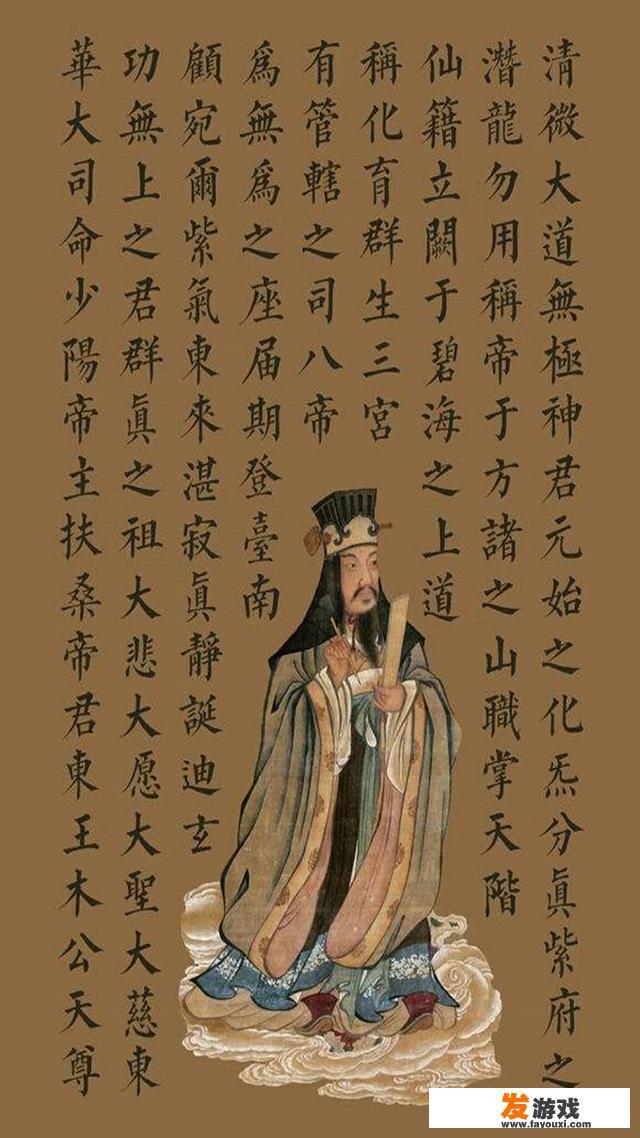 清微大道無極神君元始之化炁分眞紫府之
潛龍勿用稱帝于方諸之山職掌天階
仙籍立闕于碧海之上道
稱化育群生三宮
有管轄之司八帝
爲無爲之座届期登臺南
顧宛爾紫氣東來湛寂眞靜誕迪玄
功無上之君群眞之祖大悲大愿大聖大慈東
華大司命少陽帝主扶桑帝君東王木公天尊
发游戏
www.fayouxi.com